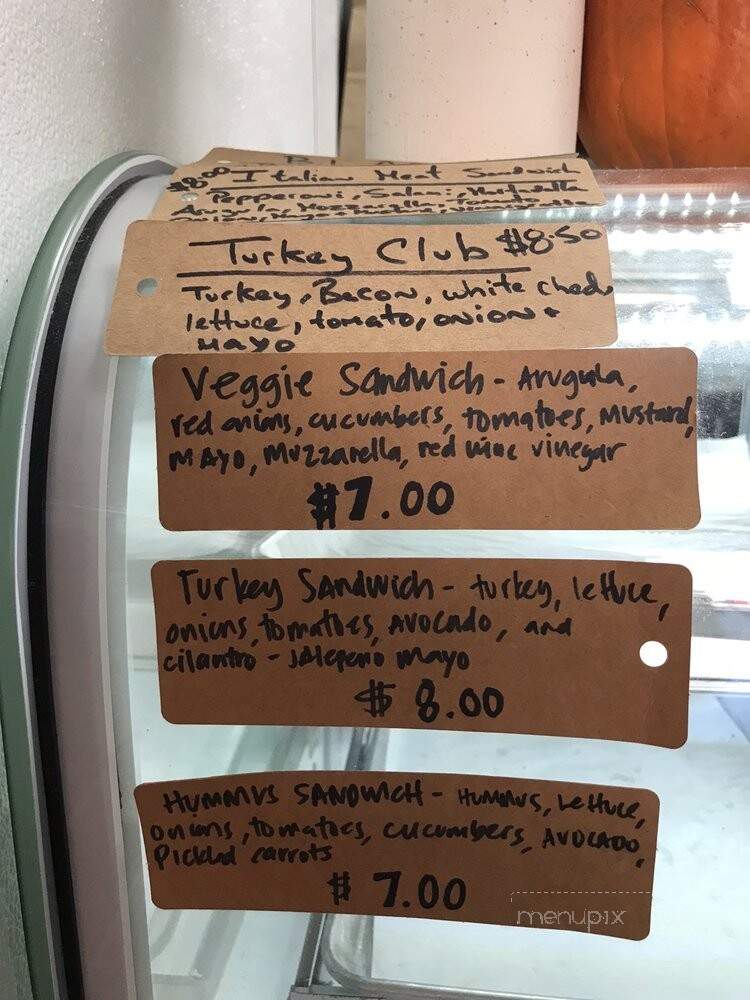 $8.00 Italian Meat Sandwich
Pepperoni, Salami, Mortadella
Tomato
Turkey Club $8.50
Turkey, Bacon, white ched,
lettuce, tomato, onion +
Mayo
Veggie Sandwich - Arugula,
red onions, cucumbers, tomatoes, Mustard,
MAYO, Mozzarella, red wine vinegar
$7.00
Turkey SANDWICH - turkey, lettuce,
onions, tomatoes, AVOCADO, and
cilantro - Jalepeno mayo
$8.00
HUMMUS SANDWICH - HUMMUS, Lettuce,
onions, tomatoes, cucumbers, AVOCADO,
Pickled carrots
$7.00
menupix